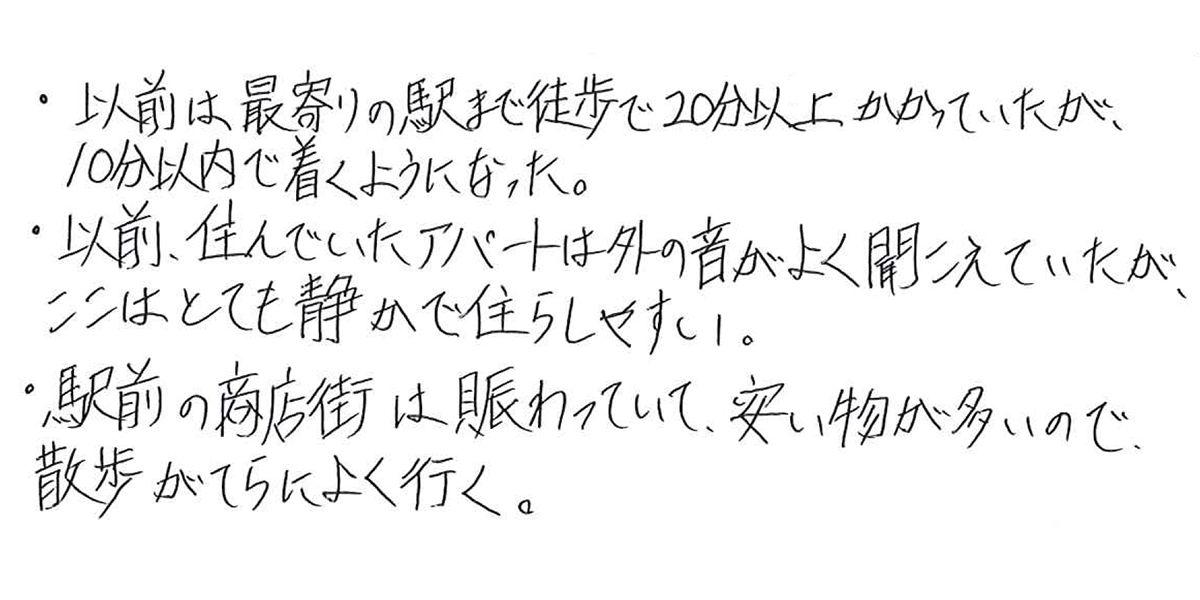 ・以前は最寄りの駅まで徒歩で20分以上かかっていたが、
10分以内で着くようになった。
・以前、住んでいたアパートは外の音がよく聞こえていたが、
ここはとても静かで住らしやすい。
・駅前の商店街は賑わっていて、安い物が多いので、
散歩がてらによく行く。